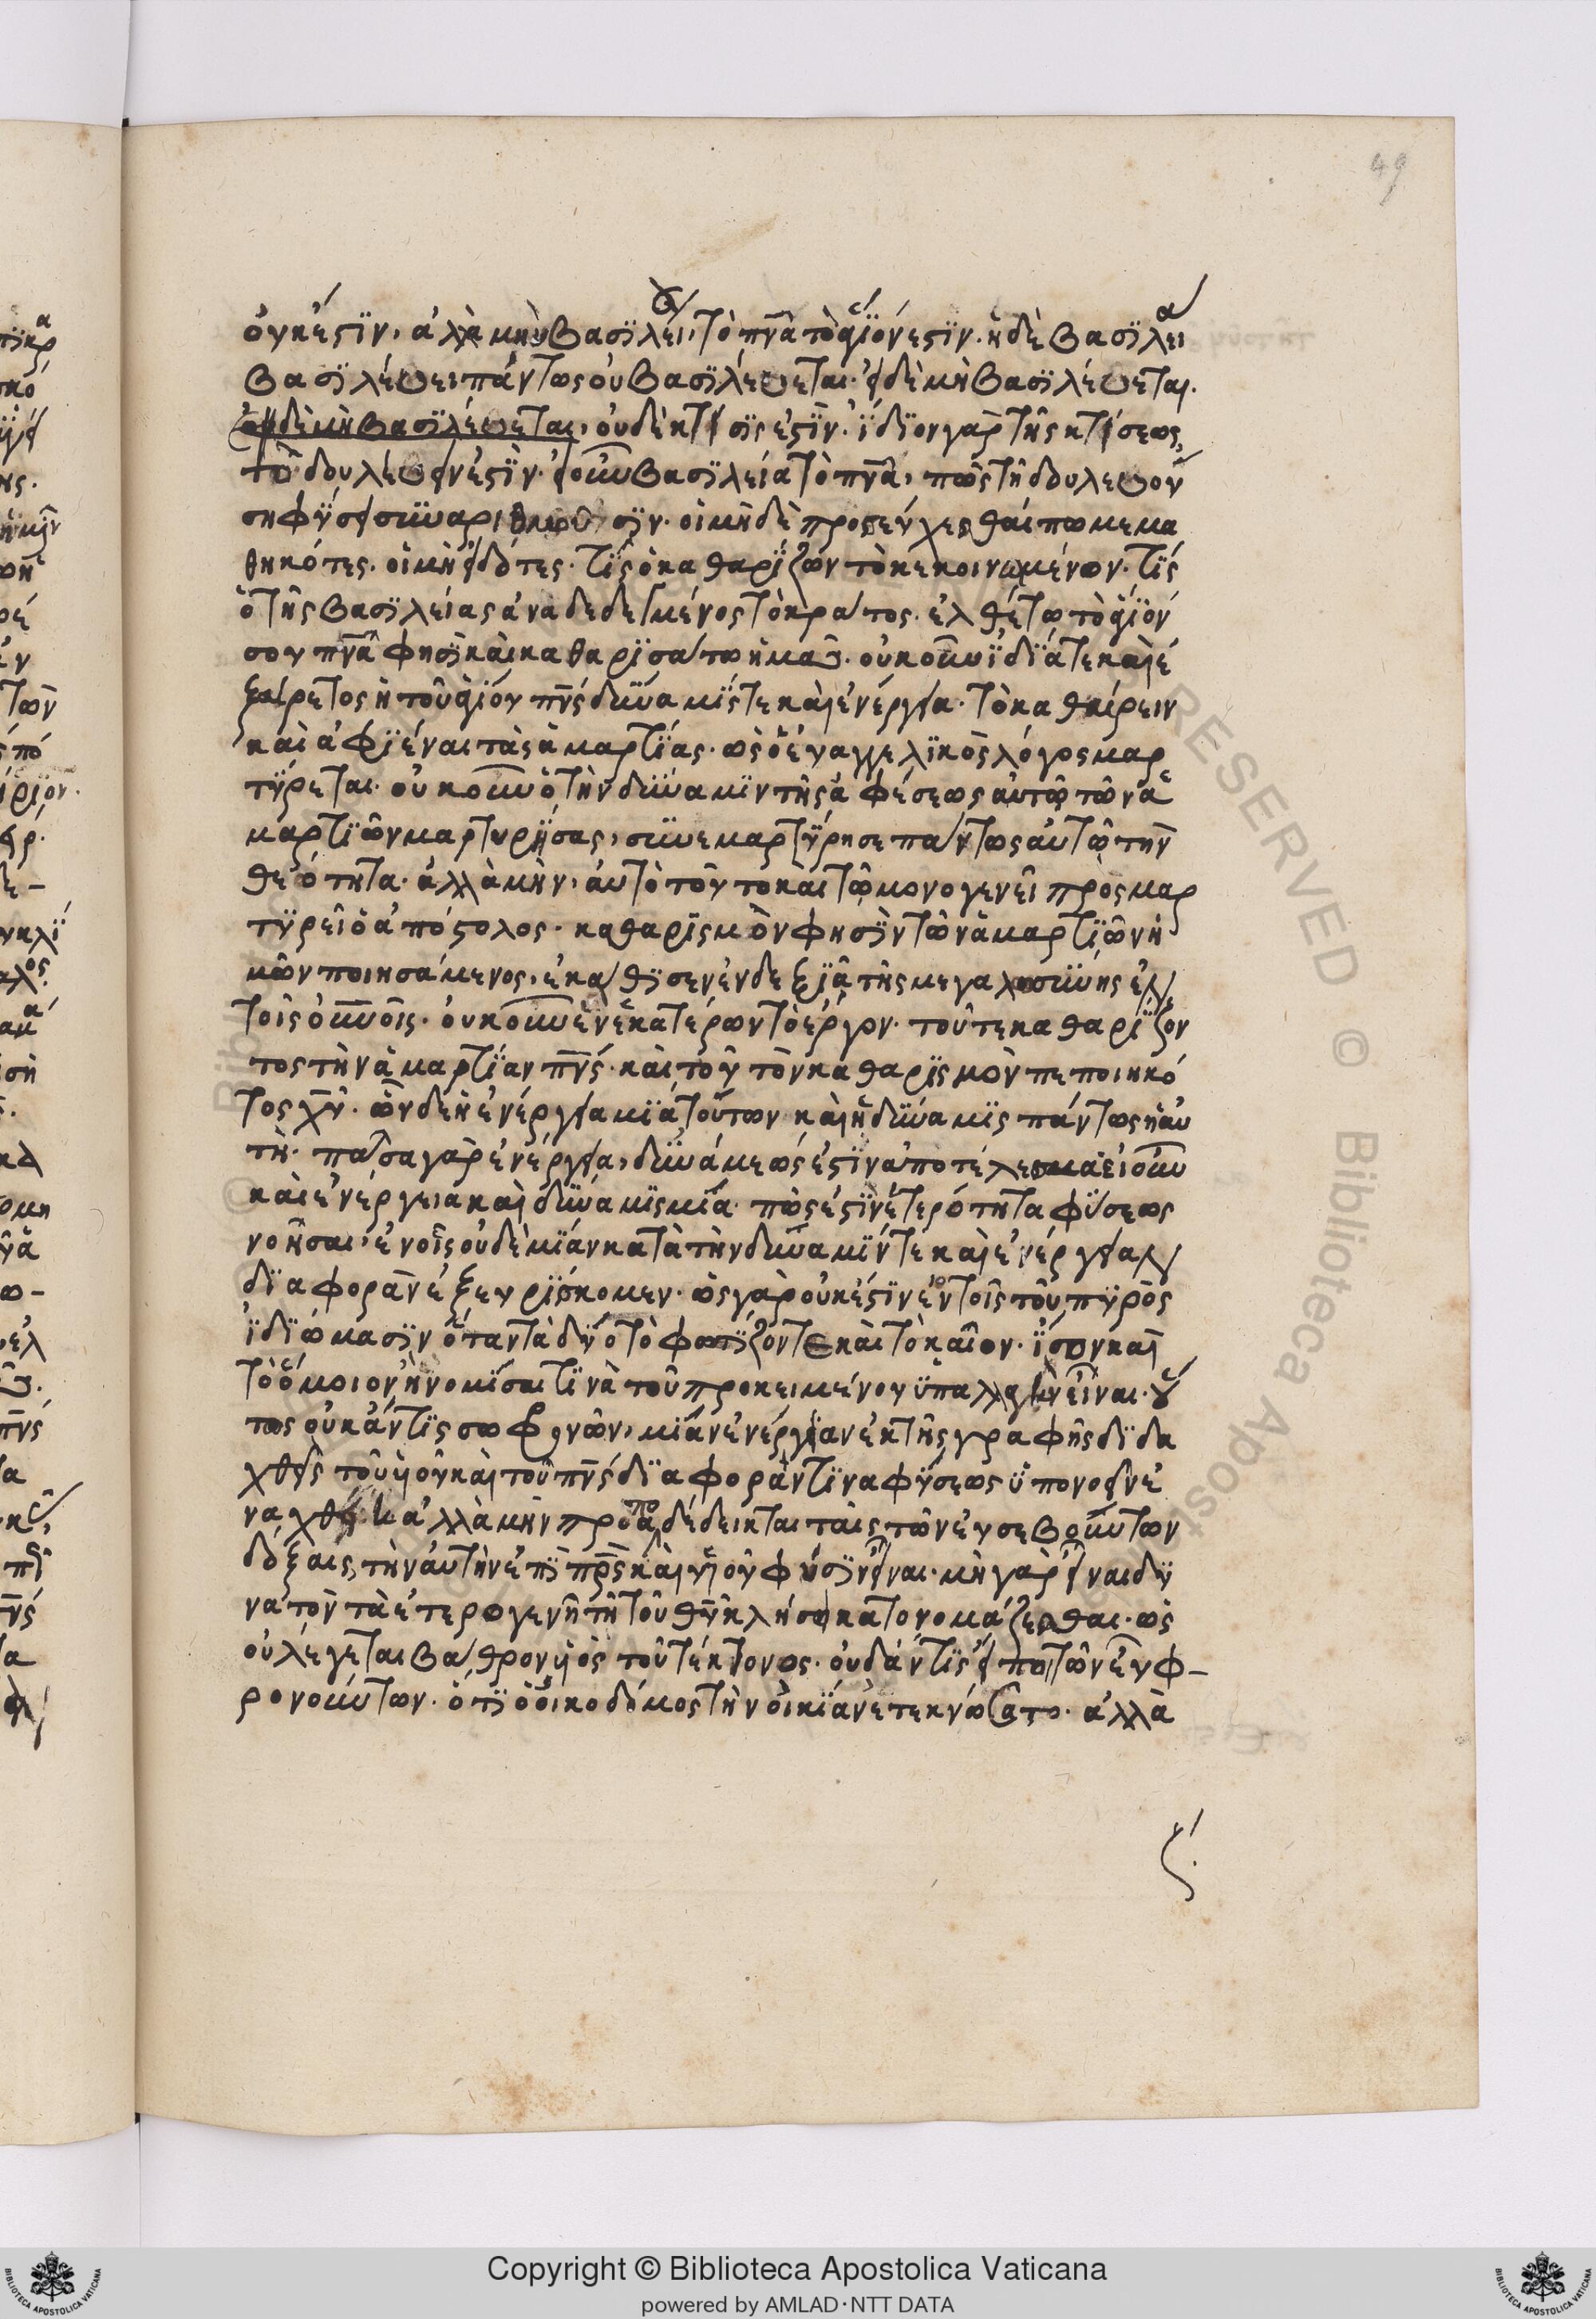 49
οὐκ ἔστιν, ἀλλὰ μὴν βασιλεία τὸ πνᾶ τὸ ἅγιόν ἐστιν. ἡ δὲ βασιλεία
βασιλεύει πάντως οὐ βασιλεύεται. εἰ δὲ μὴ βασιλεύεται.
εἰ δὲ μὴ βασιλεύεται, οὐδὲ κτίσις ἐστίν. ἴδιον γὰρ τῆς κτίσεως,
τὸ δουλεύειν ἐστίν. εἰ οὖν βασιλεία τὸ πνᾶ, πῶς τῆ δουλευού
ση φύσει συναριθμοῦσιν. οἱ μὴ δὲ προσεύχεσθαί πω μεμα
θηκότες. οἱ μὴ εἰδότες. τίς ὁ καθαρίζων τὸ κεκοινωμένον. τίς
ὁ τῆς βασιλείας ἀναδεδειγμένος τὸ κράτος. ἐλθέτω τὸ ἅγιόν
σου πνᾶ φησὶ καὶ καθαρισάτω ἡμᾶς. οὐκοῦν ἰδία τε καὶ ἐ
ξαίρετος ἡ τοῦ ἁγίου πνς δύναμίς τε καὶ ἐνέργεια. τὸ καθαίρειν
καὶ ἀφιέναι τὰς ἁμαρτίας. ὡς ὁ εὐαγγελικὸς λόγος μαρ
τύρεται. οὐκοῦν ὁ τὴν δύναμιν τῆς ἀφέσεως αὐτῶ τῶν ἁ
μαρτιῶν μαρτυρήσας, συνεμαρτύρησε πάντως αὐτῶ τὴν
θεότητα. ἀλλὰ μὴν, αὐτὸ τοῦτο καὶ τῶ μονογενεῖ προσμαρ
τυρεῖ ὁ ἀπόστολος. καθαρισμὸν φησὶν τῶν ἁμαρτιῶν ἡ
μῶν ποιησάμενος, ἐκάθισεν ἐν δεξιᾶ τῆς μεγαλοσύνης ἐν
τοῖς οὐνοῖς. οὐκοῦν ἓν ἑκατέρων τὸ ἔργον. τοῦ τε καθαρίζον
τος τὴν ἁμαρτίαν πνς. καὶ τοῦ τὸν καθαρισμὸν πεποιηκό
τος χυ. ὧν δὲ ἡ ἐνέργεια μία τούτων καὶ ἡ δύναμις πάντως ἡ αὐ
τὴ. πᾶσα γὰρ ἐνέργεια, δυνάμεώς ἐστιν ἀποτέλεσμα εἰ οὖν
καὶ ἐνέργεια καὶ δύναμις μία. πῶς ἐστὶν ἑτερότητα φύσεως
νοῆσαι, ἐν οἷς οὐδὲ μίαν κατὰ τὴν δύναμίν τε καὶ ἐνέργειαν
διαφορὰν ἐξευρίσκομεν. ὡς γὰρ οὐκ ἔστιν ἐν τοῖς τοῦ πυρὸς
ἰδιώμασιν ὅταν τὰ δύο τὸ φωτίζον τε καὶ τὸ καῖον. ἴσον καὶ
τὸ ὅμοιον ἢ νομίσαι τινὰ τοῦ προκειμένου ὑπαλλαγὴν εἶναι. οὕ
τως οὐκ ἄν τις σωφρονῶν, μίαν ἐνέργειαν ἐκ τῆς γραφῆς διδα
χθεὶς τοῦ υἱοῦ καὶ τοῦ πνς διαφοράν τινα φύσεως ὑπονοεῖν ἐ
ναχθείη ἀλλὰ μὴν προαποδέδεικται ταῖς τῶν εὐσεβούντων
δόξαις, τὴν αὐτὴν ἐπὶ πρς καὶ υἱοῦ φύσιν εἶναι. μὴ γὰρ εἶναι δυ
νατὸν τὰ ἑτερογενῆ τῆ τοῦ θυ κλήσει κατονομάζεσθαι. ὡς
οὐ λέγεται βάθρον υἱὸς τοῦ τέκτονος. οὐδ' ἄν τις εἴποι τῶν εὐφ
ρονούντων. ὅτι ὁ οἰκοδόμος τὴν οἰκίαν ἐτεκνώσατο. ἀλλὰ
ζ΄.
Copyright © Biblioteca Apostolica Vaticana
powered by AMLAD·NTT DATA